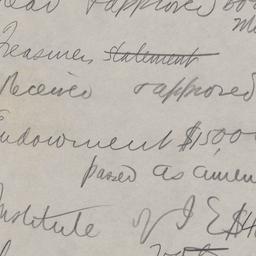 read & approved
Treasurers statement
Received & approved
Endowment $15,00
passed as amen
Institute of I E $